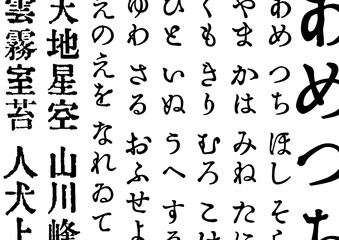 あめつち
あめ つち ほし そら
やま かは みね たに
くも きり むろ こけ
ひと いぬ うへ すゑ
ゆわ さる おふせよ
えのえを なれゐて
天地星空 山川峰
雲霧室苔 人犬上